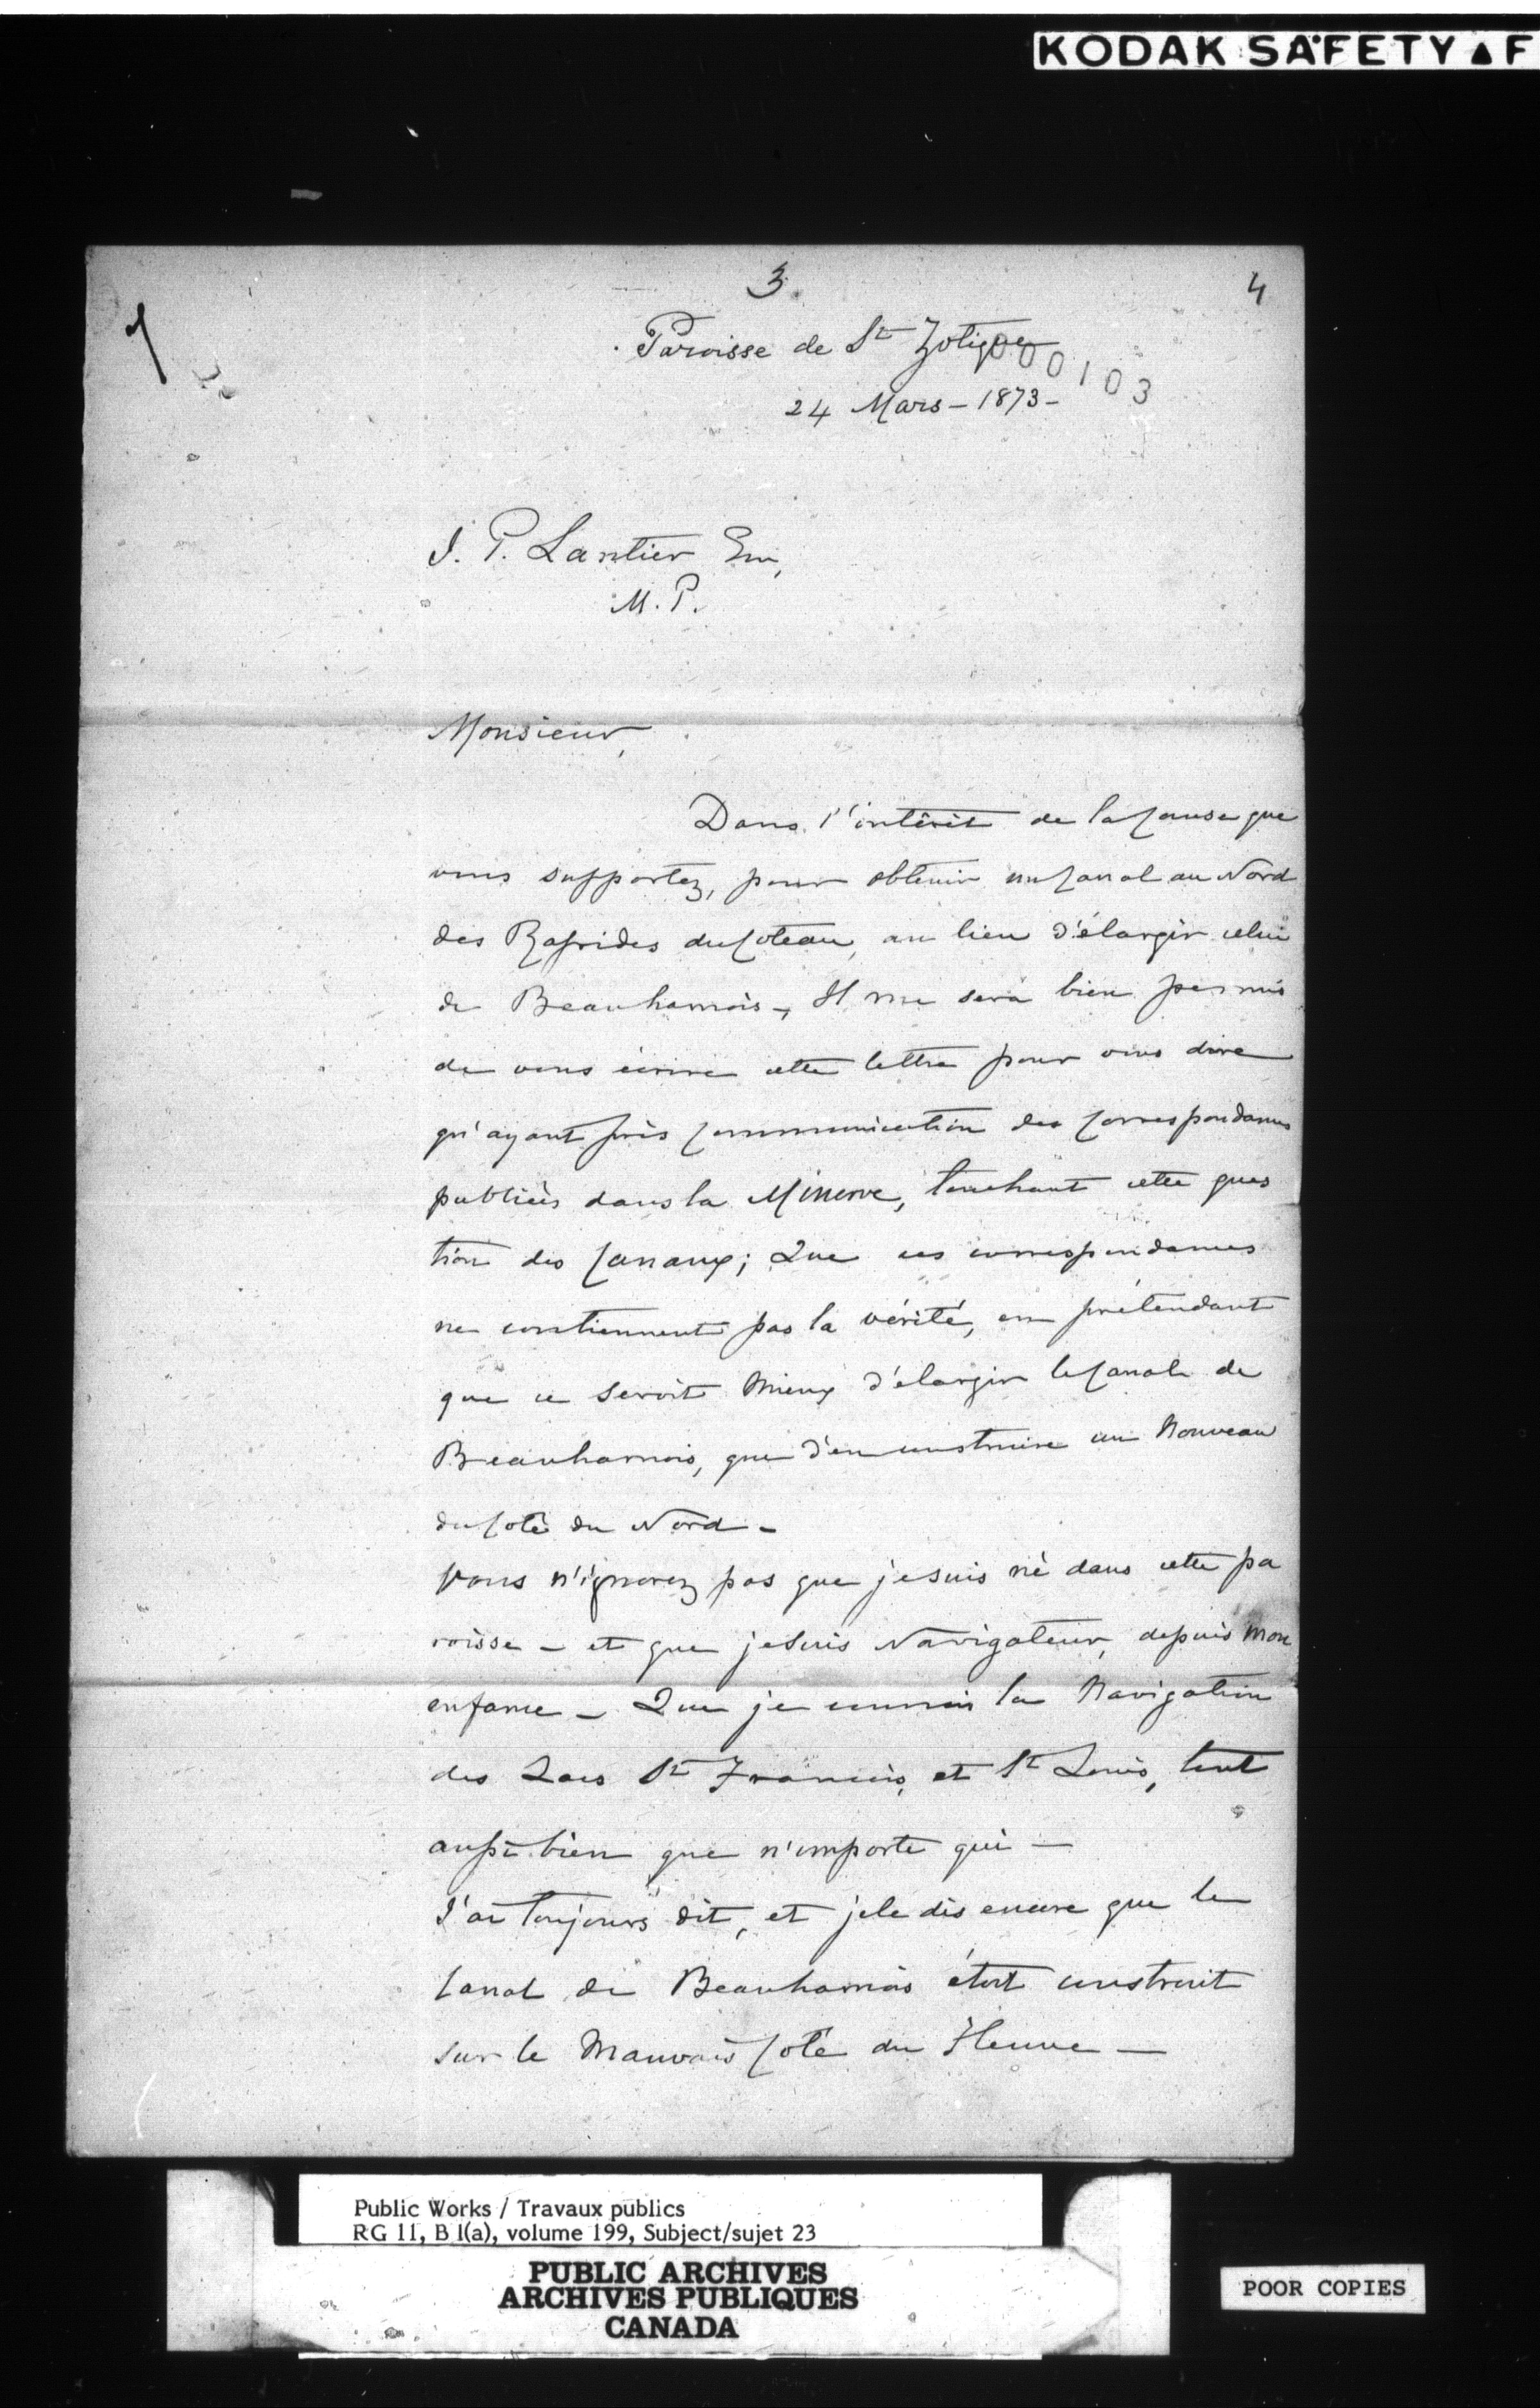 KODAK SAFETY ▲ F
3.
4
Paroisse de St Zotique
000103
24 Mars - 1873 -
J. P. Lantier
M. P.
Monsieur,
Dans l'intérêt de la Cause que
vous supportez, pour obtenir un Canal au Nord
des Rapides du Coteau, au lieu d'élargir celui
de Beauharnois -, Il me sera bien permis
de vous écrire cette lettre pour vous dire
qu'ayant pris Communication des Correspondances
publiées dans la Minerve, touchant cette ques
tion des Canaux; Que ces correspondances
ne contiennent pas la vérité, en prétendant
que ce seroit Mieux d'élargir le Canal de
Beauharnois, que d'en construire un Nouveau
du Coté du Nord -
Vous n'ignorez pas que je suis né dans cette pa
roisse - et que je suis Navigateur, depuis mon
enfance - Que je connais la Navigation
des Lacs St Francois, et St Louis, tout
aussi bien que n'importe qui -
J'ai toujours dit, et je le dis encore que le
Canal de Beauharnois étoit construit
sur le Mauvais Coté du Fleuve -
Public Works / Travaux publics
RG 11, B 1(a), volume 199, Subject/sujet 23
PUBLIC ARCHIVES
ARCHIVES PUBLIQUES
CANADA
POOR COPIES